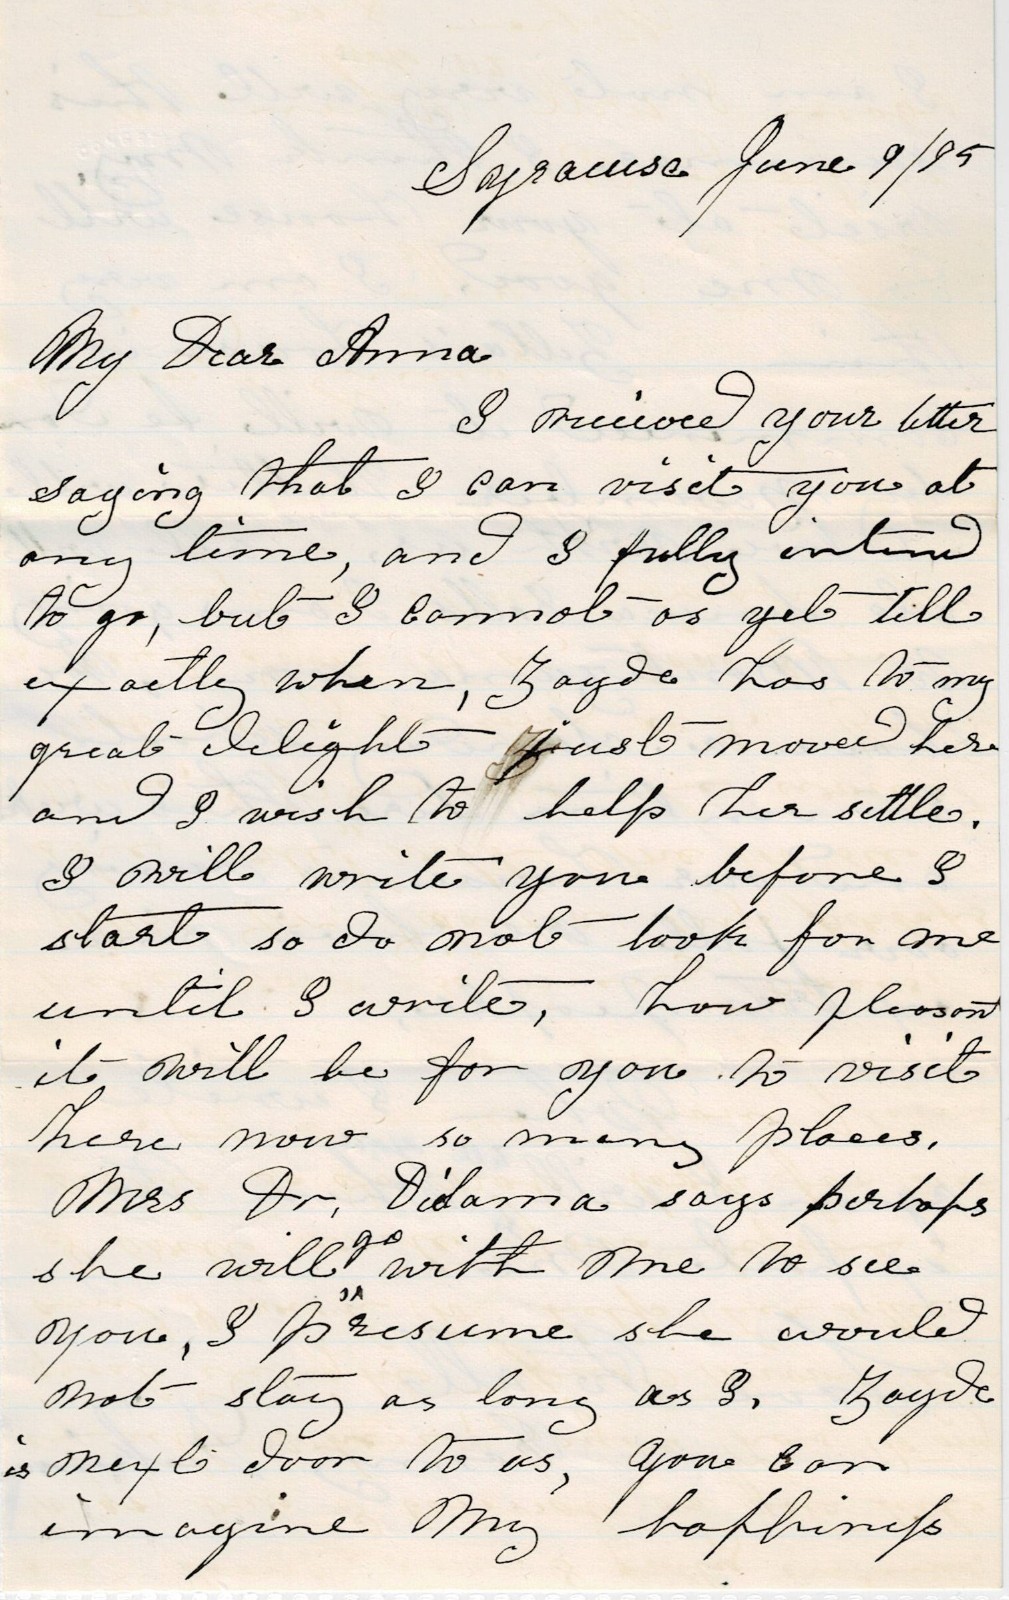 Syracuse June 9/95
My Dear Anna
I recieved your letter
saying that I can visit you at
any time, and I fully intend
to go, but I cannot as yet tell
exactly when, Zayde has to my
great delight just moved here
and I wish to help her settle.
I will write you before I
start so do not look for me
until I write, how pleasant
it will be for you to visit
here now so many places.
Mrs Dr. Didama says perhaps
she will go with me to see
you, I presume she would
not stay as long as I. Zayde
is next door to us, you can
imagine my happiness